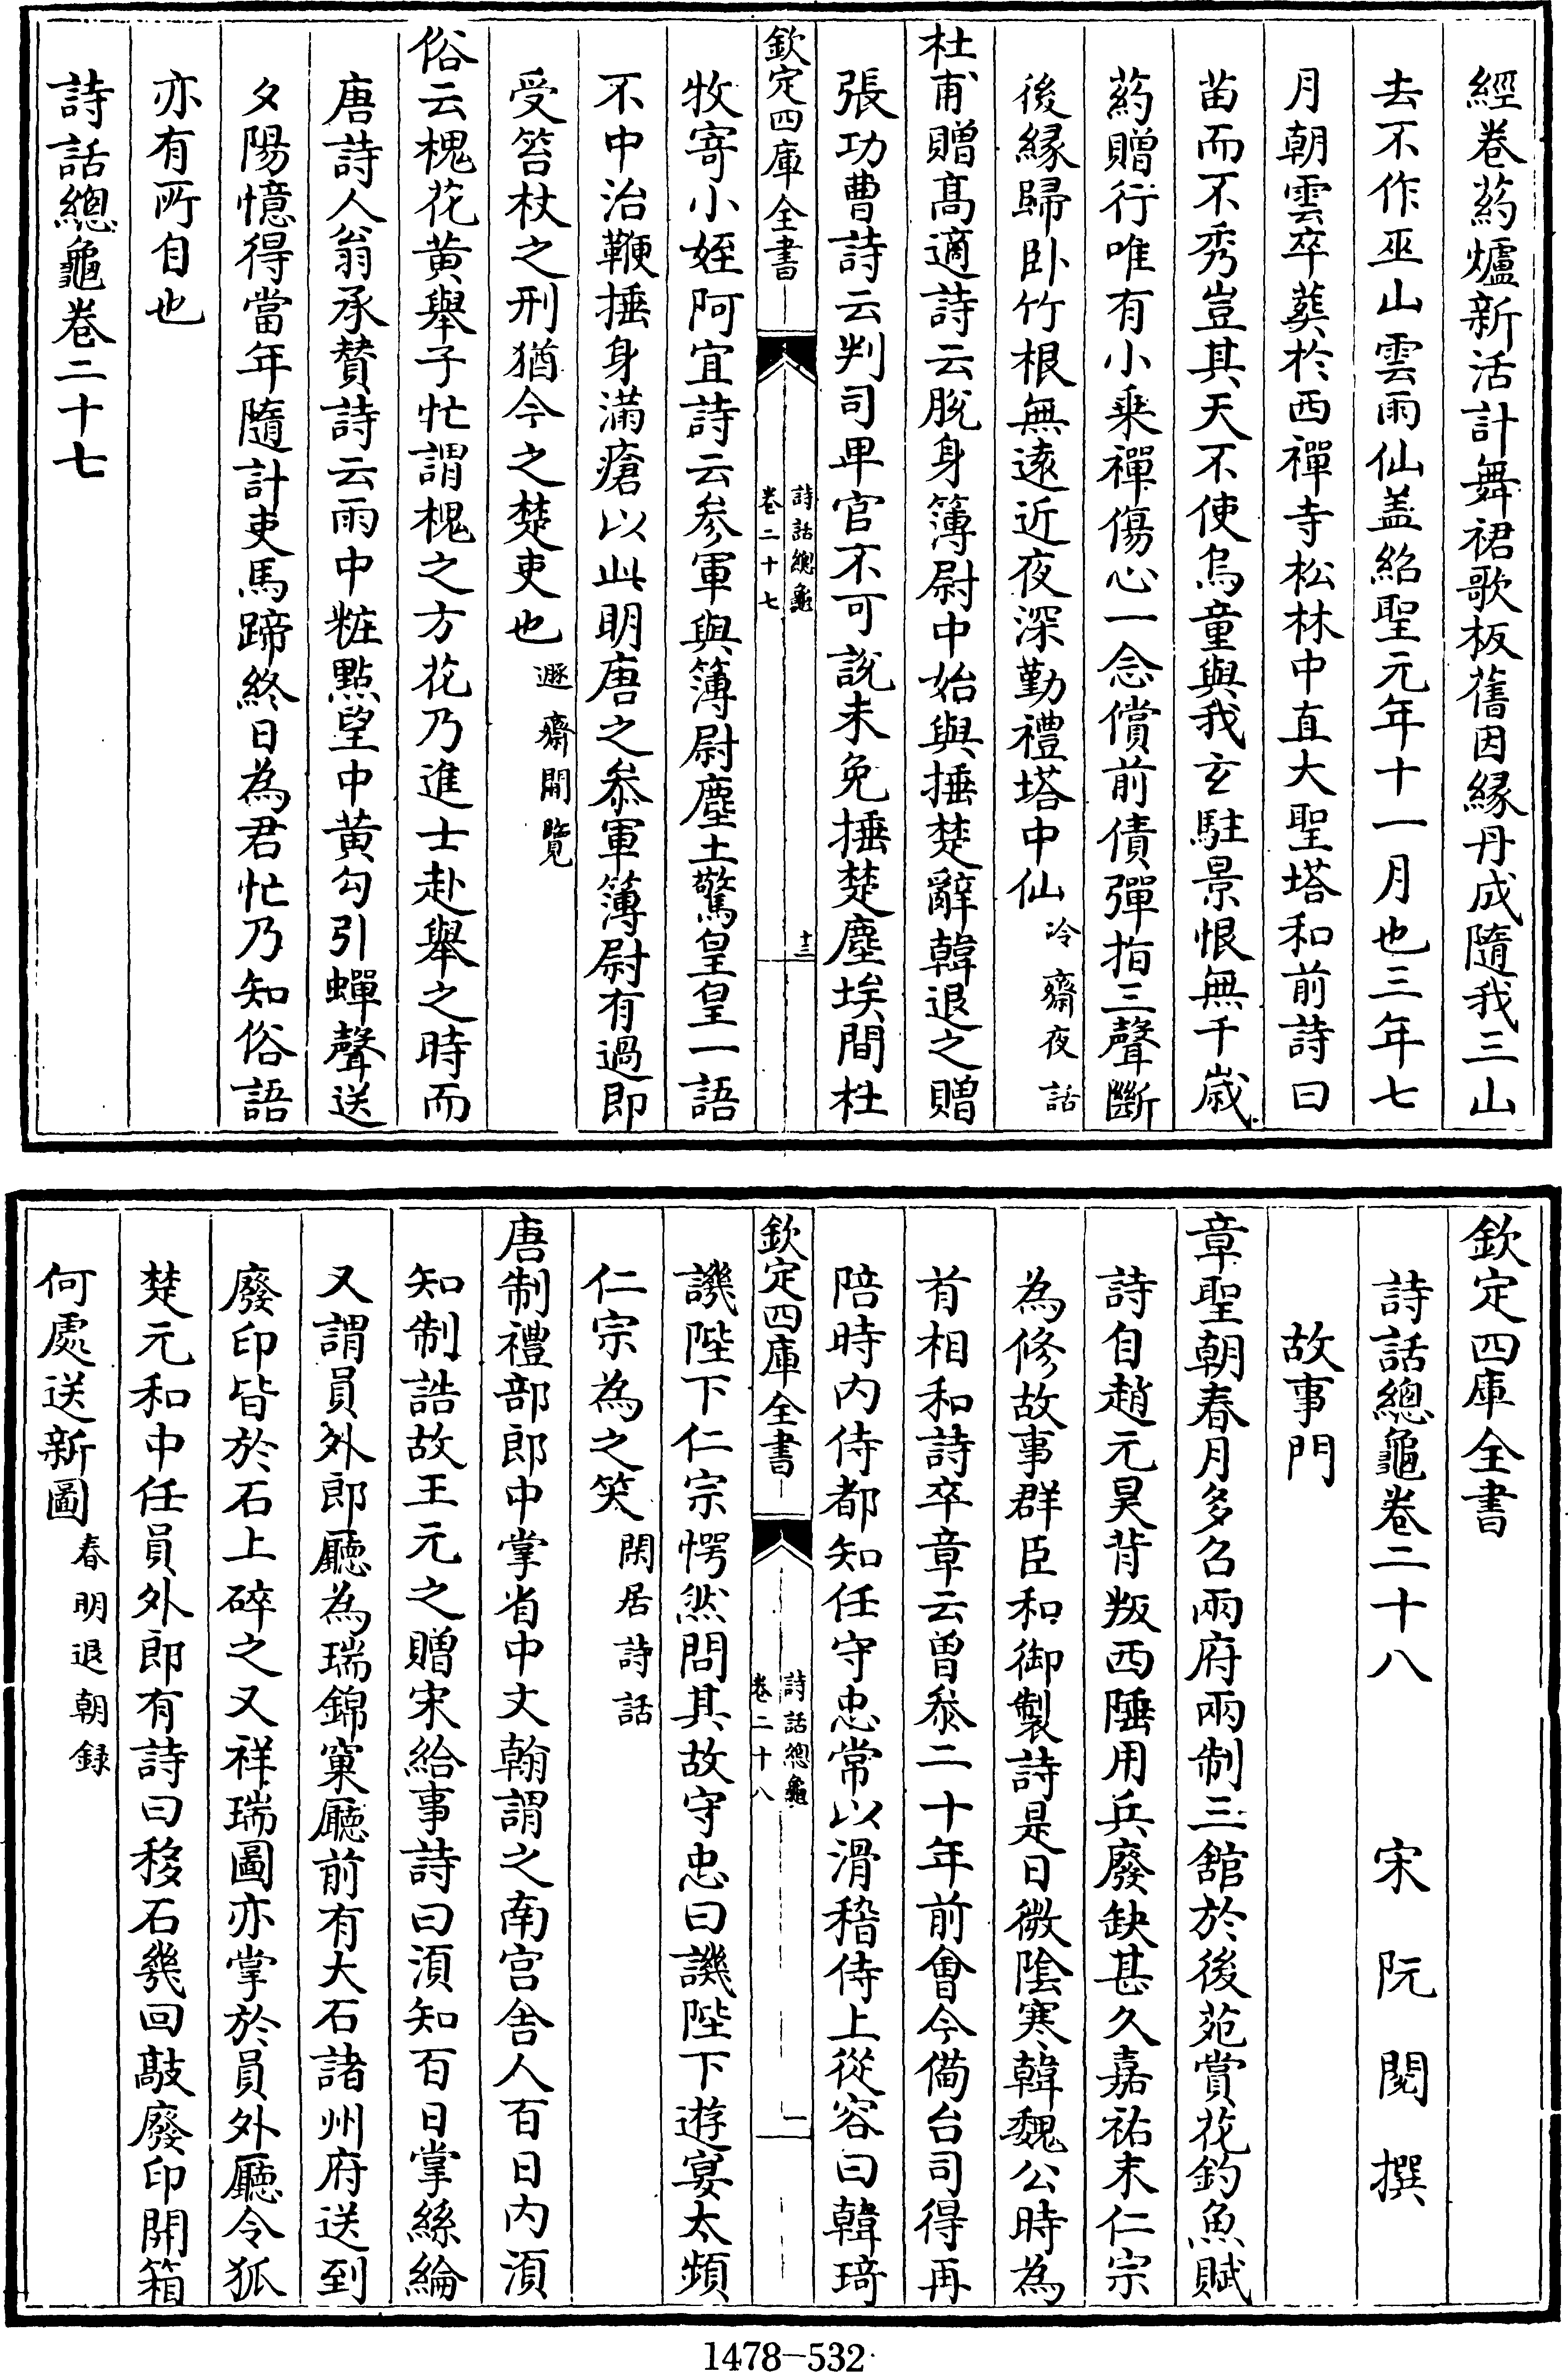 經卷葯爐新活計舞裙歌板舊因縁丹成隨我三山
去不作巫山雲雨仙盖紹聖元年十一月也三年七
月朝雲卒葬於西禪寺松林中直大聖塔和前詩曰
苗而不秀豈其天不使烏童與我玄駐景恨無千嵗
葯贈行唯有小乗禪傷心一念償前債彈指三聲斷
後縁歸卧竹根無逺近夜深勤禮塔中仙冷齋夜話
杜甫贈髙適詩云脫身簿尉中始與捶楚辭韓退之贈
張功曹詩云判司卑官不可說未免捶楚塵埃間杜
欽定四庫全書
詩話總龜
卷二十七
十三
牧寄小姪阿宜詩云參軍與簿尉塵土驚皇皇一語
不中治鞭捶身滿瘡以此明唐之叅軍簿尉有過即
受笞杖之刑猶今之楚吏也遯齋閒覽
俗云槐花黄舉子忙謂槐之方花乃進士赴舉之時而
唐詩人翁承賛詩云雨中粧㸃望中黄勾引蟬聲送
夕陽憶得當年隨計吏馬蹄終日為君忙乃知俗語
亦有所自也
詩話總龜卷二十七
欽定四庫全書
詩話總龜卷二十八 宋 阮閱 撰
故事門
章聖朝春月多召兩府兩制三舘於後苑賞花釣魚賦
詩自趙元昊背叛西陲用兵廢缺甚久嘉祐末仁宗
為修故事群臣和御製詩是日微隂寒韓魏公時為
首相和詩卒章云曾叅二十年前會今備台司得再
陪時内侍都知任守忠常以滑稽侍上從容曰韓琦
欽定四庫全書
詩話總龜
卷二十八
一
譏陛下仁宗愕然問其故守忠曰譏陛下遊宴太頻
仁宗為之笑閑居詩話
唐制禮部郎中掌省中文翰謂之南宫舍人百日内須
知制誥故王元之贈宋給事詩曰須知百日掌絲綸
又謂員外郎廳為瑞錦窠廳前有大石諸州府送到
廢印皆於石上碎之又祥瑞圖亦掌於員外廳令狐
楚元和中任員外郎有詩曰移石幾回敲廢印開箱
何處送新圖春明退朝録
1478-532